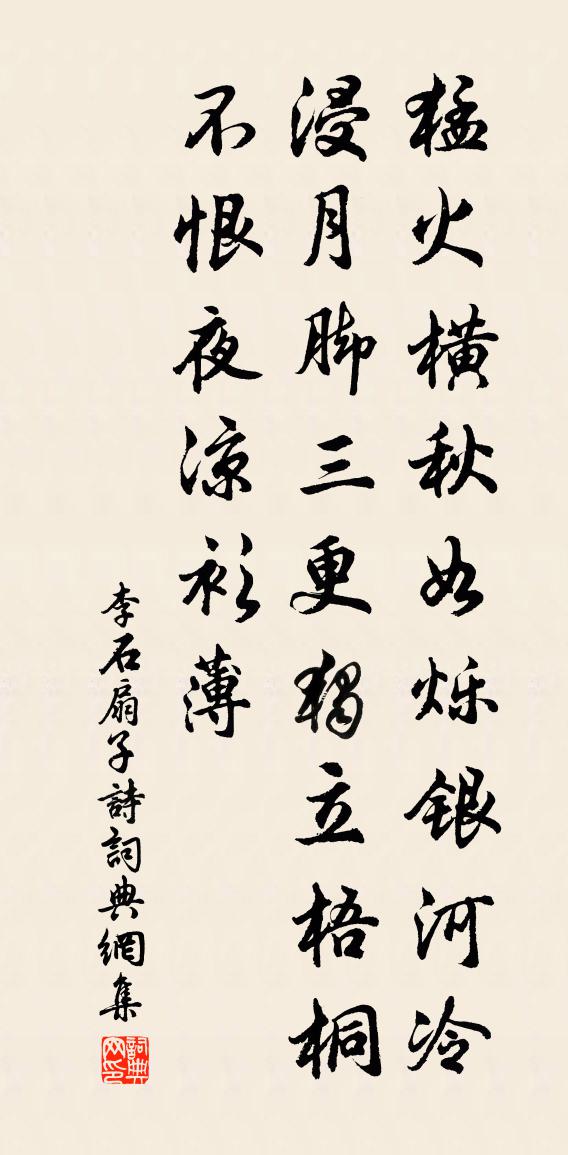 猛火橫秋如烁銀河冷
浸月脚三更獨立梧桐
不恨夜凉衫薄
李石扇子詩詞典網集
詞典网印